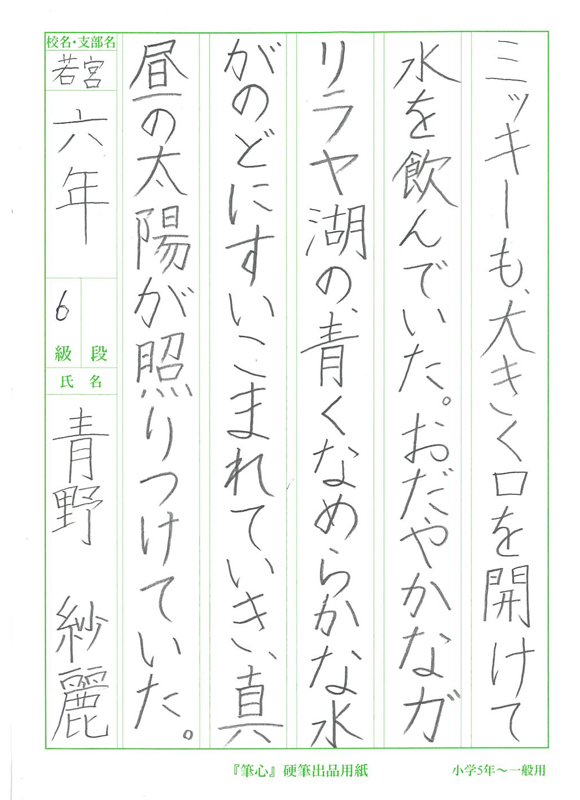 ミッキーも、大きく口を開けて
水を飲んでいた。おだやかなガ
リラヤ湖の、青くなめらかな水
がのどにすいこまれていき、真
昼の太陽が照りつけていた。
校名・支部名
若宮
六年
6
級 段
氏 名
青野 紗麗
『筆心』硬筆出品用紙
小学5年〜一般用